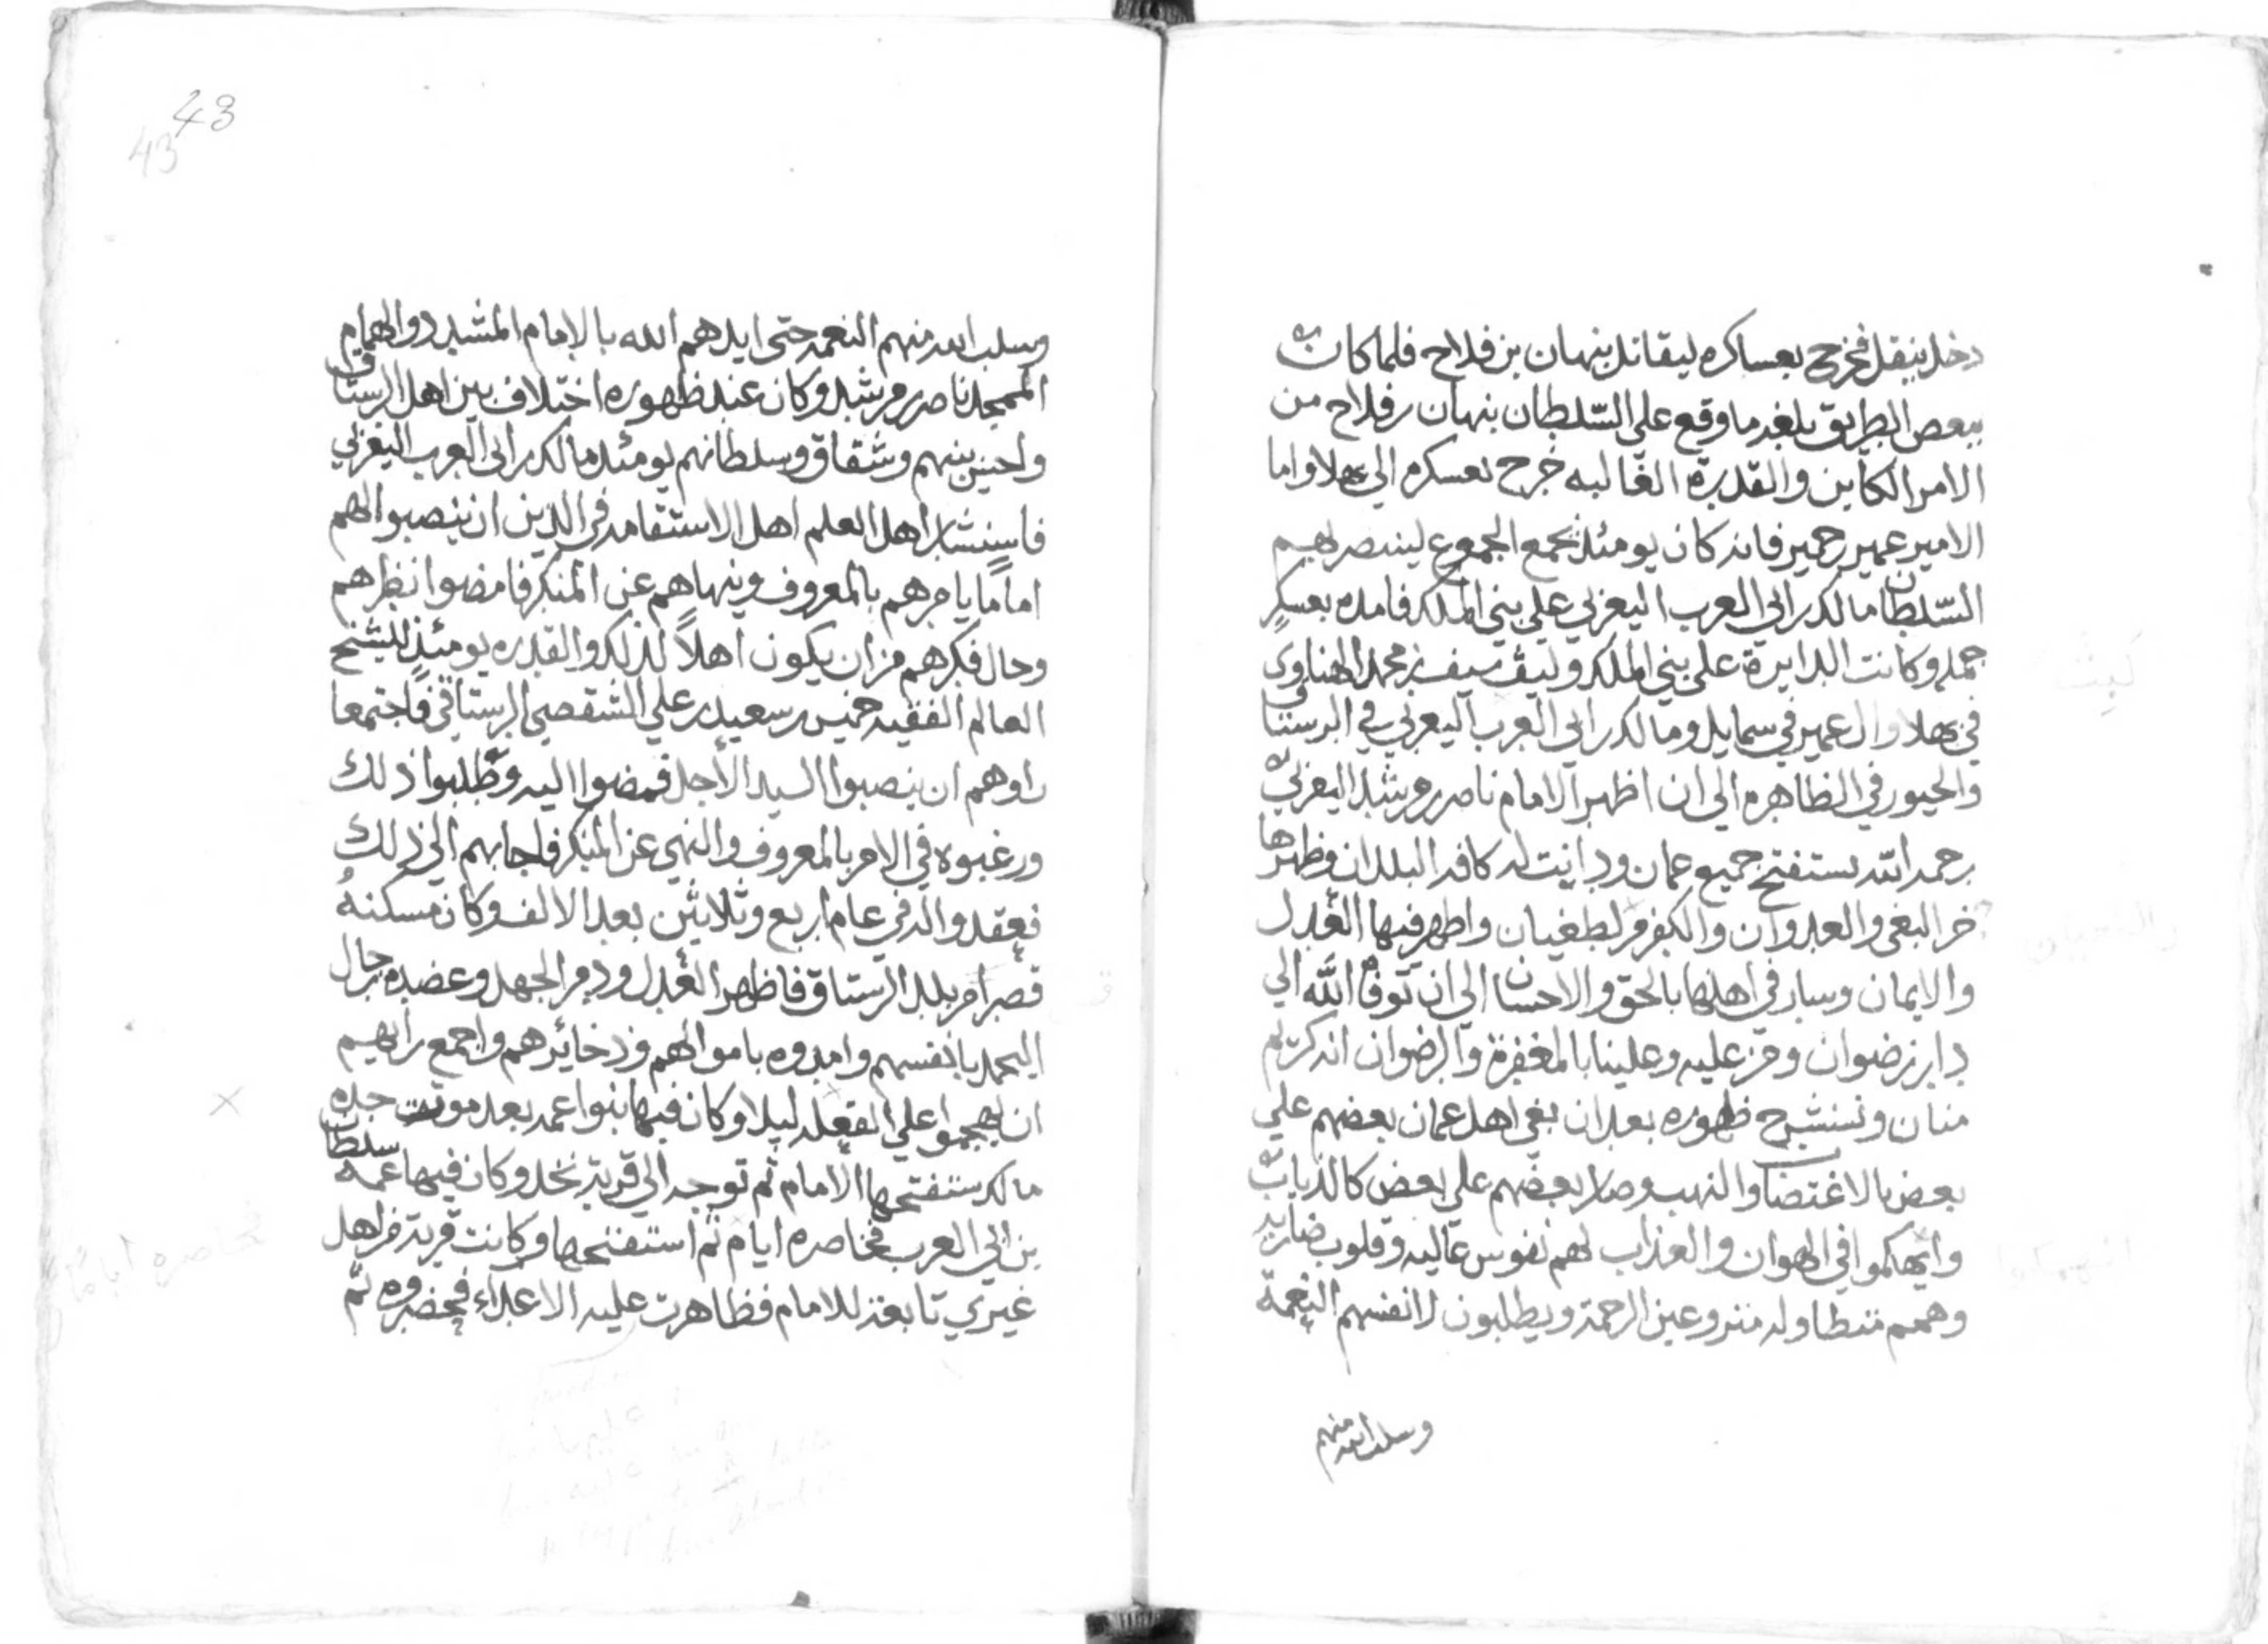 دخل ينقل فخرج بعساكره ليقاتل بنهان بن فلاح فلما كان
ببعض الطريق بلغه ما وقع على السّلطان بنهان بن فلاح من
الامر الكاين والقدرة الغالبه خرج بعسكره الي بهلا واما
الامير عمير بن حمير فانه كان يومئذ يجمع الجموع لينتصر بهم
السّلطان مالك بن ابي العرب اليعربي علي بني الملك فامده بعسكرٍ
جمه وكانت الدايرة علي بني الملك وليث سيف بن محمد الهناوي
في بهلا وال عمير في سمايل ومالك بن ابي العرب اليعربي في الرستاق
والجبور في الظاهره الى ان اظهر الامام ناصر بن مرشد اليعربي
رحمه الله يستفتح جميع عمان ودانيت له كافه البلدان وطهرها
من البغي والعدوان والكفر والطغيان واظهر فيها العدل
والايمان وسار في اهلها بالحق والاحسان الى ان توفاه الله الي
دار رضوان ومن عليه وعلينا بالمغفرة والرضوان انه كريم
منان ونشرح ظهوره بعد ان بغي اهل عمان بعضهم علي
بعض بالاغتصاب والنهب وصار بعضهم على بعض كالذياب
وانهكموا في الهوان والعذاب لهم نفوس عاليه وقلوب ضاريه
وهمم متطاوله منزوعين الرحمة ويطلبون لانفسهم النعمة
وسلب الله منهم
48
43
وسلب الله منهم النعمه حتى ايدهم الله بالامام المشيد ذو الهمام
الممجد ناصر بن مرشد وكان عند ظهوره اختلاف بين اهل الرستاق
واحن بينهم وشقاق وسلطانهم يومئذ مالك بن ابي العرب اليعربي
فاستشار اهل العلم اهل الاستقامه في الدين ان ينصبوا لهم
اماماً يامرهم بالمعروف وينهاهم عن المنكر فامضوا نظرهم
وحال فكرهم من ان يكون اهلاً لذلك والقدره يومئذٍ للشيخ
العالم الفقيه خميس بن سعيد بن علي الشقصي الرستاقي فاجتمعا
راوهم ان ينصبوا السيد الاجل فمضوا اليه وطلبوا ذلك
ورغبوه في الامر بالمعروف والنهي عن المنكر فاجابهم الي ذلك
فعقدوا له في عام اربع وثلاثين بعد الالف وكان مسكنهُ
قصرا من بلد الرستاق فاظهر العدل ودمر الجهل وعضده رجال
اليحمد بانفسهم وامدوه باموالهم وذخائرهم واجمع رايهم
ان يهجموا علي القعله ليلا وكان فيها بنوا عمه بعد موت جده
مالك ستفتحها الامام ثم توجه الي قرية نخل وكان فيها عمه سلطان
بن ابي العرب فحاصره ايام ثم استفتحها وكانت قرية من اهل
غيري تابعة للامام فظاهرت عليه الاعداء فحضروه ثم